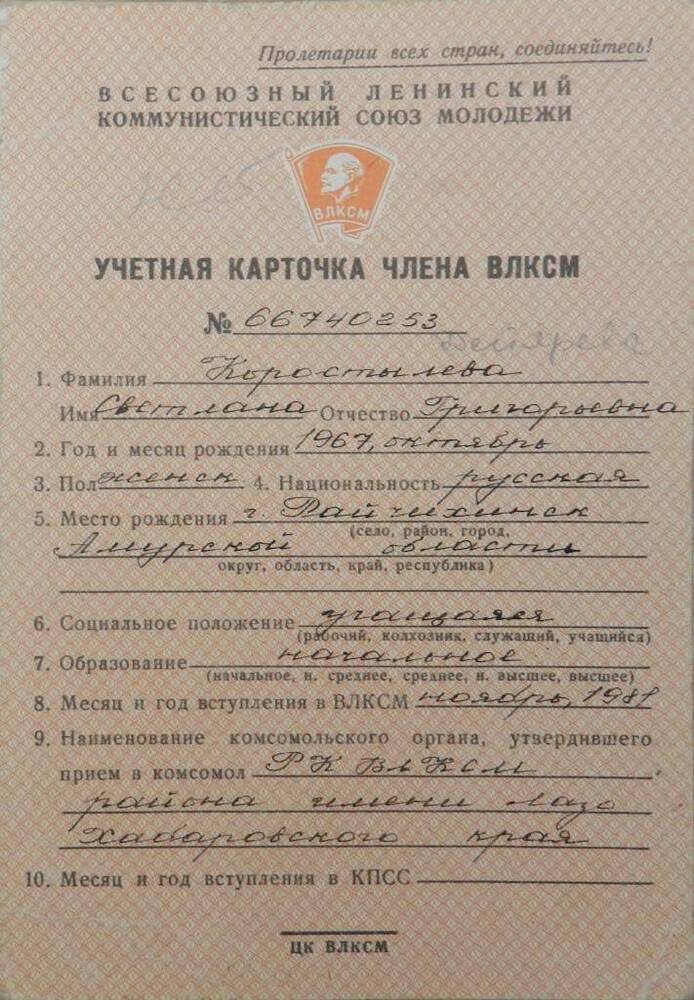 Пролетарии всех стран, соединяйтесь!
ВСЕСОЮЗНЫЙ ЛЕНИНСКИЙ
КОММУНИСТИЧЕСКИЙ СОЮЗ МОЛОДЕЖИ
ВЛКСМ
УЧЕТНАЯ КАРТОЧКА ЧЛЕНА ВЛКСМ
№ 66740253
1. Фамилия Коростылева
Имя Светлана Отчество Григорьевна
2. Год и месяц рождения 1967, октябрь
3. Пол женск 4. Национальность русская
5. Место рождения г. Райчихинск
(село, район, город,
Амурской области
округ, область, край, республика)
6. Социальное положение учащаяся
(рабочий, колхозник, служащий, учащийся)
7. Образование начальное
(начальное, н. среднее, среднее, н. высшее, высшее)
8. Месяц и год вступления в ВЛКСМ ноябрь,
9. Наименование комсомольского органа, утвердившего
прием в комсомол РК ВЛКСМ
района имени Лазо
Хабаровского края
10. Месяц и год вступления в КПСС
ЦК ВЛКСМ